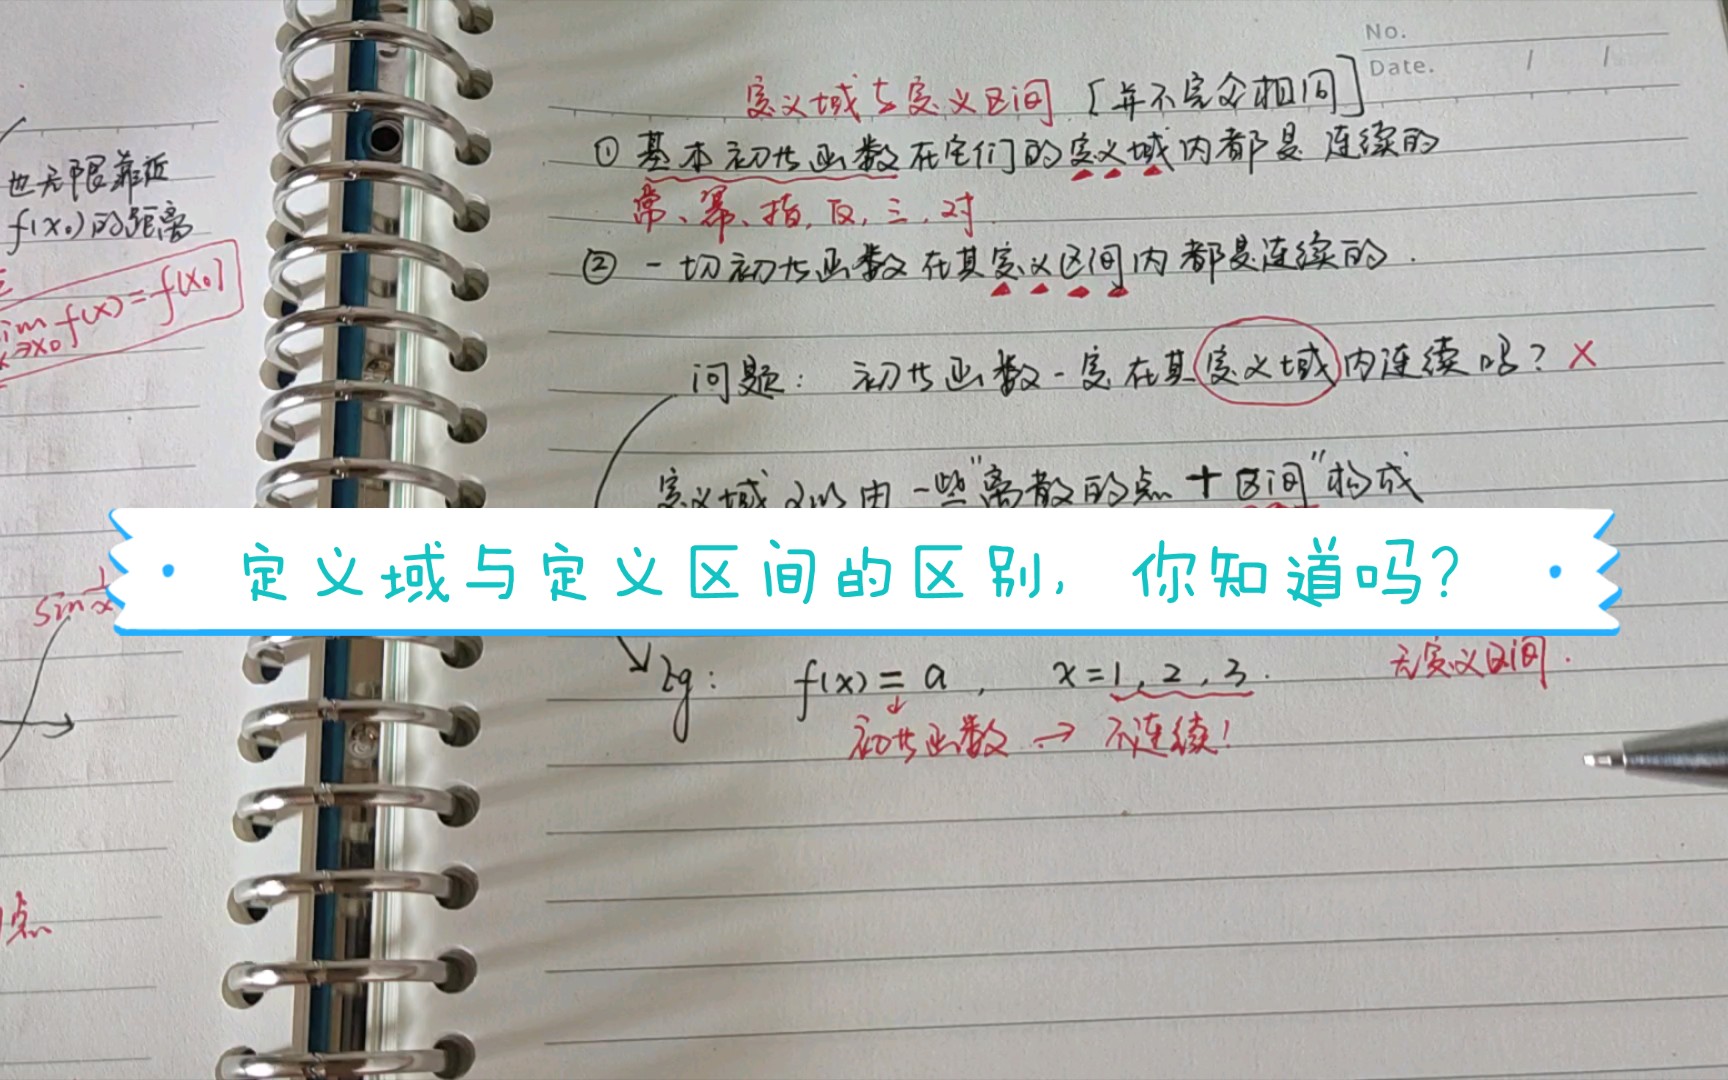 No.
Date. / /
定义域与定义区间 [并不完全相同]
①基本初等函数在它们的定义域内都是连续的
常、幂、指、反、三、对
②一切初等函数在其定义区间内都是连续的.
问题: 初等函数一定在其定义域内连续吗? ×
定义域可以由一些"离散的点+区间"构成
定义域与定义区间的区别, 你知道吗?
无定义区间.
Eg: f(x)=a, x=1,2,3.
初等函数→不连续!
也无限靠近
f(x₀)的距离
lim f(x)=f(x₀)
x→x₀
sin 1/x
点